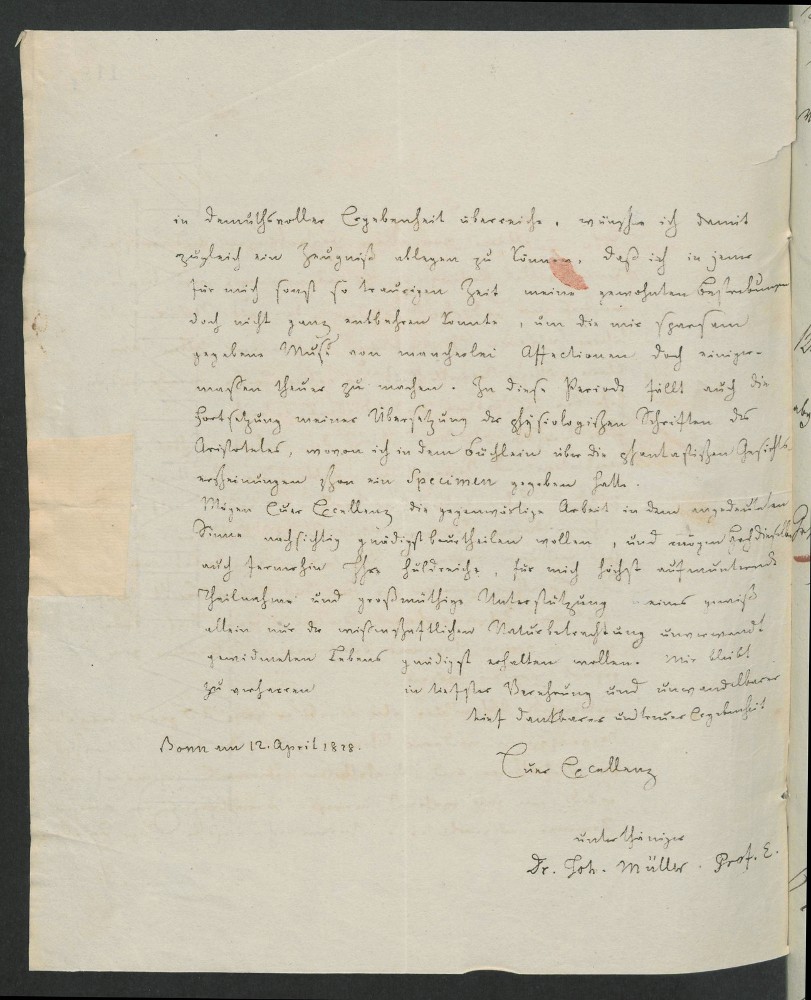 in demuthsvoller Ergebenheit überreiche, wünsche ich damit
zugleich ein Zeugniß ablegen zu können, daß ich in jener
für mich sonst so traurigen Zeit meine gewohnten Bestrebungen
doch nicht ganz entbehren konnte, um die mir sparsam
gegebene Muße von mancherlei Affectionen doch einiger-
massen theuer zu machen. In diese Periode fällt auch die
Fortsetzung meiner Übersetzung der physiologischen Schriften des
Aristoteles, wovon ich in dem Büchlein über die phantastischen Gesichts-
erscheinungen schon ein Specimen gegeben hatte.
Mögen Euer Excellenz die gegenwärtige Arbeit in dem angedeuteten
Sinne nachsichtig gnädigst beurtheilen wollen, und mögen Hochdieselben
auch fernerhin Ihre huldreiche, für mich höchst aufmunternde
Theilnahme und großmüthige Unterstützung eines gewiß
allein nur der wissenschaftlichen Naturbetrachtung unverwandt
gewidmeten Lebens gnädigst erhalten wollen. Mir bleibt
zu verharren in tiefster Verehrung und unwandelbarer
tief dankbarer und treuer Ergebenheit
Bonn am 12. April 1828.
Euer Excellenz
unterthäniger
Dr. Joh. Müller. Prof. E.